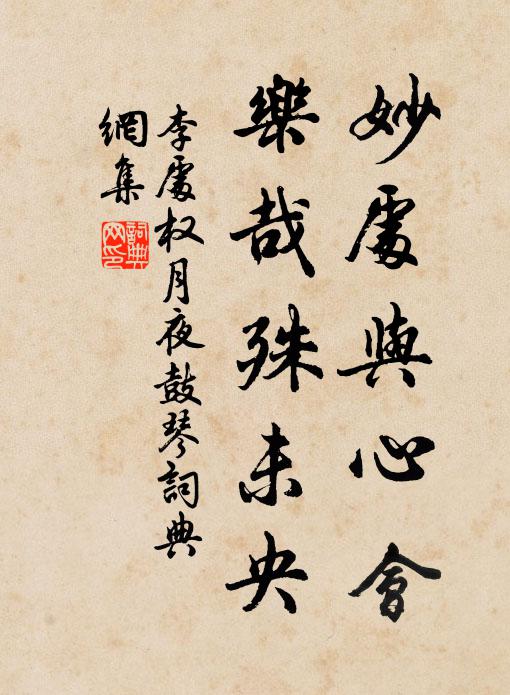 妙處與心會
樂哉殊未央
李處权月夜鼓琴詞典
網集
詞典
网印